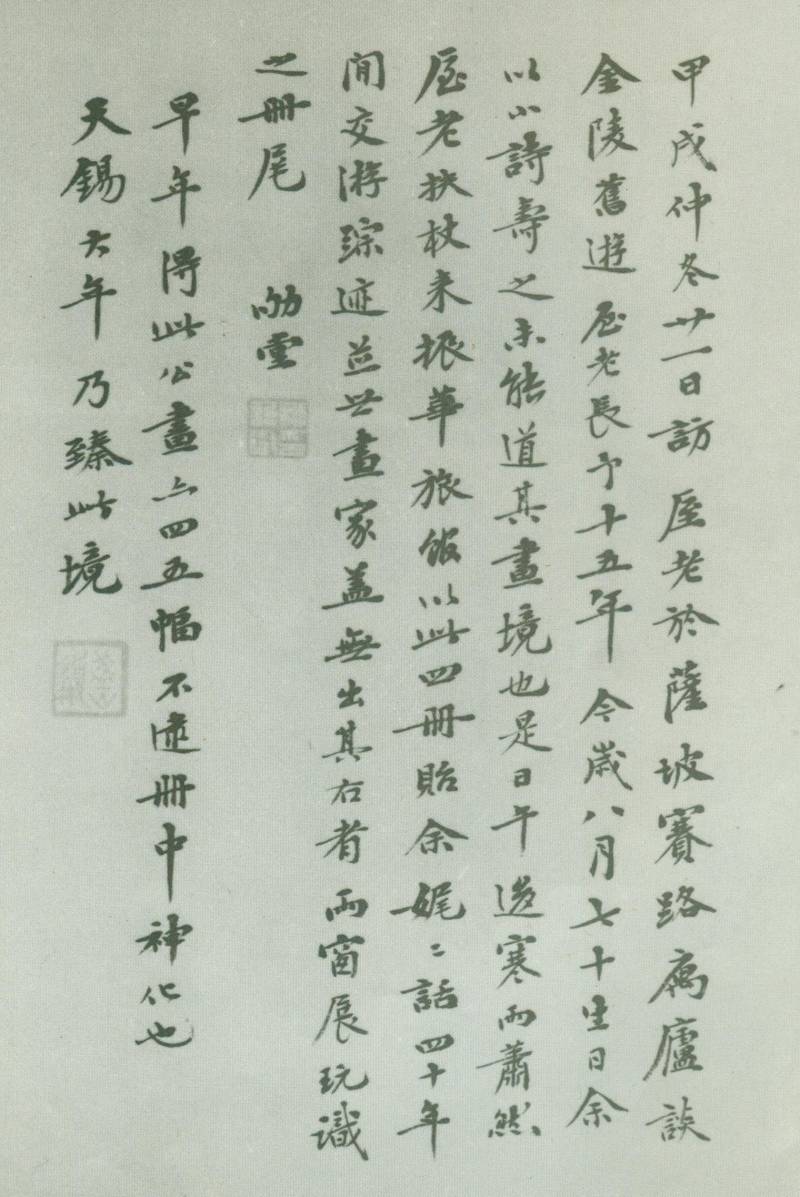 甲戌仲冬廿一日訪 厔老於薩坡賽路寓廬談
金陵舊遊厔老長予十五年今歲八月七十生日余
以小詩壽之未能道其畫境也是日午後寒雨蕭然
厔老扶杖来振華旅館以此四冊貽余娓〻話四十年
間交游踪迹並世畫家蓋無出其右者雨窗展玩識
之冊尾 雲
早年得此公畫亦四五幅不逮冊中神化也
天錫大年乃臻此境